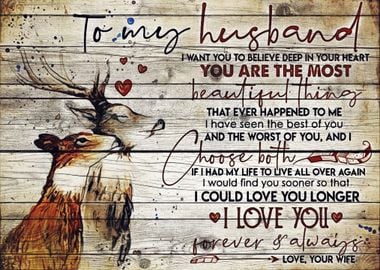 To my husband
I WANT YOU TO BELIEVE DEEP IN YOUR HEART
YOU ARE THE MOST
beautiful thing
THAT EVER HAPPENED TO ME
I have seen the best of you
AND THE WORST OF YOU, AND I
Choose both
IF I HAD MY LIFE TO LIVE ALL OVER AGAIN
I would find you sooner so that
I COULD LOVE YOU LONGER
I LOVE YOU
forever & always
LOVE, YOUR WIFE